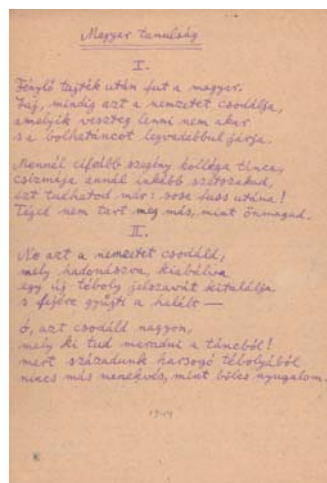 Magyar tanulság
I.
Fénylő tajték után fut a magyar.
Jaj, mindig azt a nemzetet csodálja,
amelyik veszteg lenni nem akar
s a bolhatáncot legvadabbul járja.
Mennél cifrább szegény kolléga tánca,
csizmája annál inkább szétszakad,
ezt tudhatod már: sose fuss utána!
Téged nem tart meg más, mint önmagad.
II.
Ne azt a nemzetet csodáld,
mely hadonászva, kiabálva
egy új téboly jelszavát kitalálja
s fejére gyűjti a halált —
ó, azt csodáld nagyon,
mely ki tud maradni a táncból!
mert századunk harsogó tébolyából
nincs más menekvés, mint bölcs nyugalom.
1944